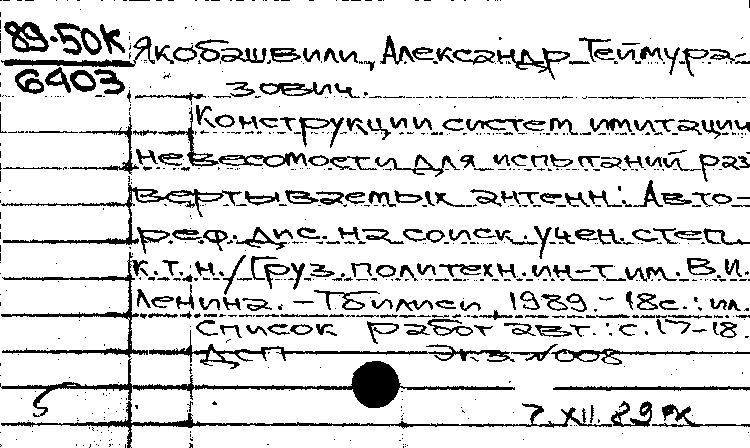 89-50К
6403
Якобашвили, Александр Теймура-
зович.
Конструкции систем имитации
невесомости для испытаний раз
вертываемых антенн: Авто-
реф. дис. на соиск. учен. степ.
к.т.н. / Груз. политехн. ин-т им. В.И.
Ленина. - Тбилиси, 1989. - 18с.: ил.
Список работ авт.: с. 17-18.
ДСП Экз. №008
7.XII.89